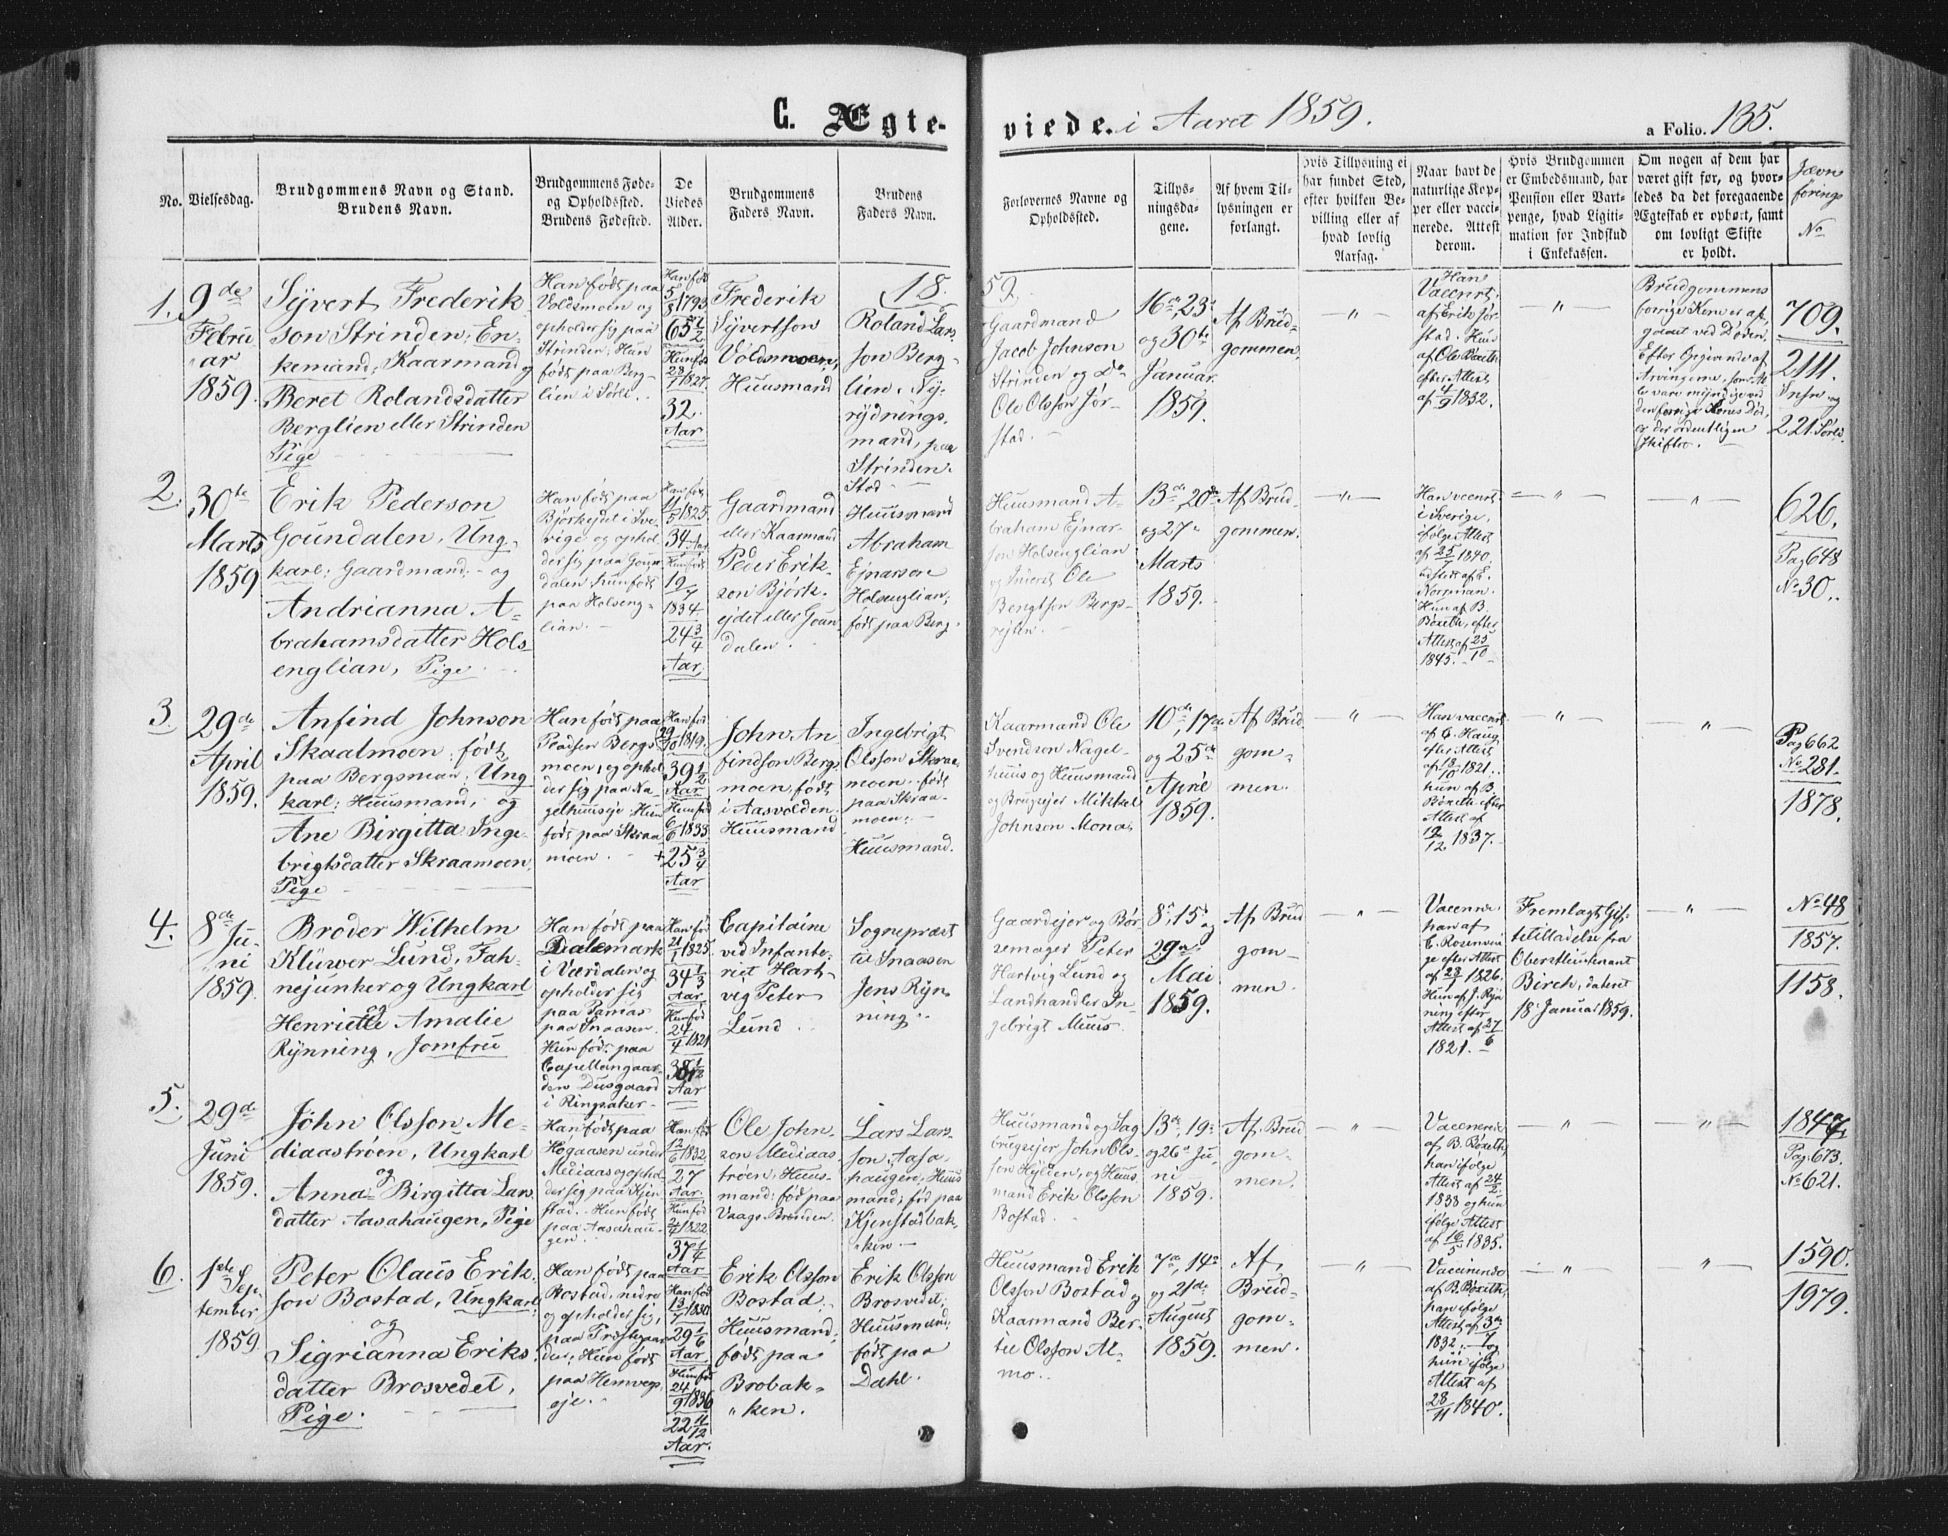 C. Ægte-
viede. i Aaret 1859.
a Folio. 135.
No.
Vielsesdag.
Brudgommens Navn og Stand.
Brudens Navn.
Brudgommens Føde-
og Opholdssted.
Brudens Fødested.
De
Viedes
Alder.
Brudgommens
Faders Navn.
Brudens
Faders Navn.
Forlovernes Navne og
Opholdssted.
Tillys-
ningsda-
gene.
Af hvem Til-
lysningen er
forlangt.
Hvis Tillysning ei
har fundet Sted,
efter hvilken Be-
villing eller af
hvad lovlig
Aarsag.
Naar havt de
naturlige Kop-
per eller vacci-
nerede. Attest
derom.
Hvis Brudgommen
er Embedsmand, har
Pension eller Vart-
penge, hvad Ligiti-
mation for Indskud
i Enkekassen.
Om nogen af dem har
været gift før, og hvor-
ledes da det foregaaende
Ægteskab er ophørt, samt
om lovligt Skifte
er holdt.
Jævn
førings
No
1859.
1.
9de
Febru
ar
1859.
Syvert Frederik
son Strinden, En-
kemand, Kaarmand og
Beret Rolandsdatter
Berglien eller Strinden
Pige
Han født paa
Voldsmoen og
opholder sig paa
Strinden; Hun
født paa Berg-
lien i Sørli.
Han født
5/8 1793
65 1/2
Hun født
23/7 1827.
32.
Aar
Frederik
Syvertson
Voldsmoen,
Huusmand
Roland Lars-
son Berg-
lien, Ny-
rydnings-
mand, paa
Strinden.
Gaardmand
Jacob Johnson
Strinden og Do
Ole Olsson Jør-
stad.
16de, 23de
og 30te
Januar
1859.
Af Brud-
gommen.
"
Han
Vaccnert
af Erik Jør-
stad. Hun
af Ole Boxeth
efter Attest
af 4/9 1832.
"
Brudgommens
forrige Kone er af-
gaaet ved Døden.
Efter Opgivende af
Arvingerne, som Al-
le vare myndige ved
den forrige Kones Død,
er der ordentligen
skiftet.
709.
2111.
Snsn og
221. Sørli.
2.
30te
Marts
1859
Erik Pederson
Goundalen, Ung-
karl; Gaardmand; og
Andrianna A-
brahamsdatter Hols-
englian, Pige
Han født paa
Bjørkejdet i Sve-
rige og ophol-
der sig paa Goun
dalen; hun født
paa Holseng-
lian.
Han født
11/5 1825.
34. Aar
Hun født
19/7
1834.
24 3/4
Aar.
Gaardmand
eller Kaarmand
Peder Erik-
son Bjørk-
ejdet eller Goun-
dalen.
Stod
Huusmand
Abraham
Ejnarson
Holsenglian;
født paa Berg.
Huusmand A-
braham Ejnar-
son Holsenglian
og Inderst Ole
Bengtson Bergs-
vejten.
13de, 20de
og 27de
Marts
1859.
Af Brud-
gommen.
"
Han vaccnert
i Sverige,
ifølge Attest
af 25/7 1840.
udstedt af E.
Norrman.
Hun af B.
Boxeth, efter
Attest af 25/10
1845.
"
"
626.
Pag 648
No 30.
3.
29de
April
1859.
Anfind Johnson
Skaalmoen; født
paa Bergsmoen; Ung
karl; Huusmand, og
Ane Birgitta Inge-
brigtsdatter Skraamoen,
Pige
Han født paa
Pladsen Bergs
moen, og ophol
der sig paa Na-
gelhuuseje; Hun
født paa Skraa
moen.
Han født
29/10 1819.
39 1/2
Aar
Hun født
6/6 1833
25 3/4
Aar
John An-
findson Bergs
moen, født
i Aasvolden
Huusmand
Ingebrigt
Olsson Skraa-
moen, født
paa Skraa-
moen.
Huusmand.
Kaarmand Ole
Svendson Nagel-
huus og Huusmand
og Brugsejer Mikkel
Johnson Mona,
10de, 17de
og 25de
April
1859.
Af Brud
gom-
men.
"
Han vaccnert
af C. Haug
efter Attest
af 18/10 1821.
hun af B.
Boxeth efter
Attest af
12/12 1837.
"
"
Pag 662
No 281.
1878.
4.
8de Ju-
ni
1859.
Broder Wilhelm
Klüwer Lund, Fah-
nejunker og Ungkarl
og
Henriette Amalie
Rynning, Jomfru
Han født paa
Dalemark
i Værdalen og
opholder sig
paa Parnas
paa Snaasen.
Hun født paa
Capellangaar-
den Dusgaard
i Ringsaker
Han født
21/1 1825.
34 1/3
Aar.
Hun født
24/4 1821
38 1/2
Aar
Capitaine
ved Infante-
riet Hart-
vig Peter
Lund
Sognepræst
til Snaasen
Jens Ryn-
ning.
Gaardejer og Bør-
semager Peter
Hartvig Lund og
Landhandler In-
gebrigt Muus.
8de, 15de og
29de
Mai
1859.
Af Brud
gom-
men.
"
Vaccnerede
han af
C. Rosenvin
ge efter Attest
af 23/7 1826.
Hun af J. Ryn
ning efter
Attest af 27/6
1821.
Fremlagt Gif-
tetilladelse fra
Oberstleutnant
Birch, dateret
18de Januar 1859.
"
No 48
1857.
1158.
5.
29de
Juni
1859.
John Olsson Me-
diaastrøen, Ungkarl
og
Anna Birgitta Lars
datter Aasahaugen, Pige
Han født paa
Høgaasen under
Mediaas og ophol-
der sig paa Kjen-
stad. Hun født
paa Aasahau-
gen.
Han født
12/6 1832
27
Aar
Hun født
1822
37 1/4
Aar
Ole John-
son Mediaas-
trøen; Huus-
mand; født paa
Vaags Brenden.
Lars Lars-
son, Aasa-
haugen, Huus
mand; fød paa
Kjenstadbak-
ken
Huusmand og Sag
brugsejer John Ols-
son Hyllen, og Huus
mand Erik Olsson
Bostad.
13de, 19de
og 26de Ju-
ni
1859.
Af Brud
gom-
men.
"
Vaccnerede
af B. Boxeth,
han ifølge
Attest af 24/2
1833 og hun
ifølge Attest
af 16/5 1835.
"
"
Pag: 673.
No 621.
6.
1ste Sep-
tember
1859.
Peter Olaus Erik-
son Bostad, Ungkarl;
og
Sigrianna Eriks-
datter Brosvedet,
Pige.
Han født paa
Bostad, nedre
og opholder sig,
paa Præstegaar-
den; Hun født
paa Hemvegs-
eje.
Han født
13/7 1830
29 1/6
Aar.
Hun født
24/9 1836
22 11/12
Aar.
Erik Olsson
Bostad;
Huusmand;
født paa
Brobak-
ken.
Erik Olsson
Brosvedet;
Huusmand;
født paa
Dahl.
Huusmand Erik
Olsson Bostad og
Kaarmand Ber-
til Olsson Al-
mo.
7de, 14de
og 21de
August
1859.
Af
Brud-
gom-
men.
"
Vaccinerede
af B. Boxeth,
han ifølge
Attest af
1832. og
hun ifølge
Attest af
28/11 1840.
"
"
1590.
1979.